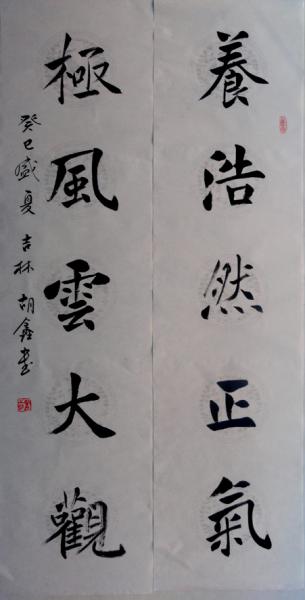 養浩然正氣
極風雲大觀
癸巳盛夏 吉林 胡鑫書